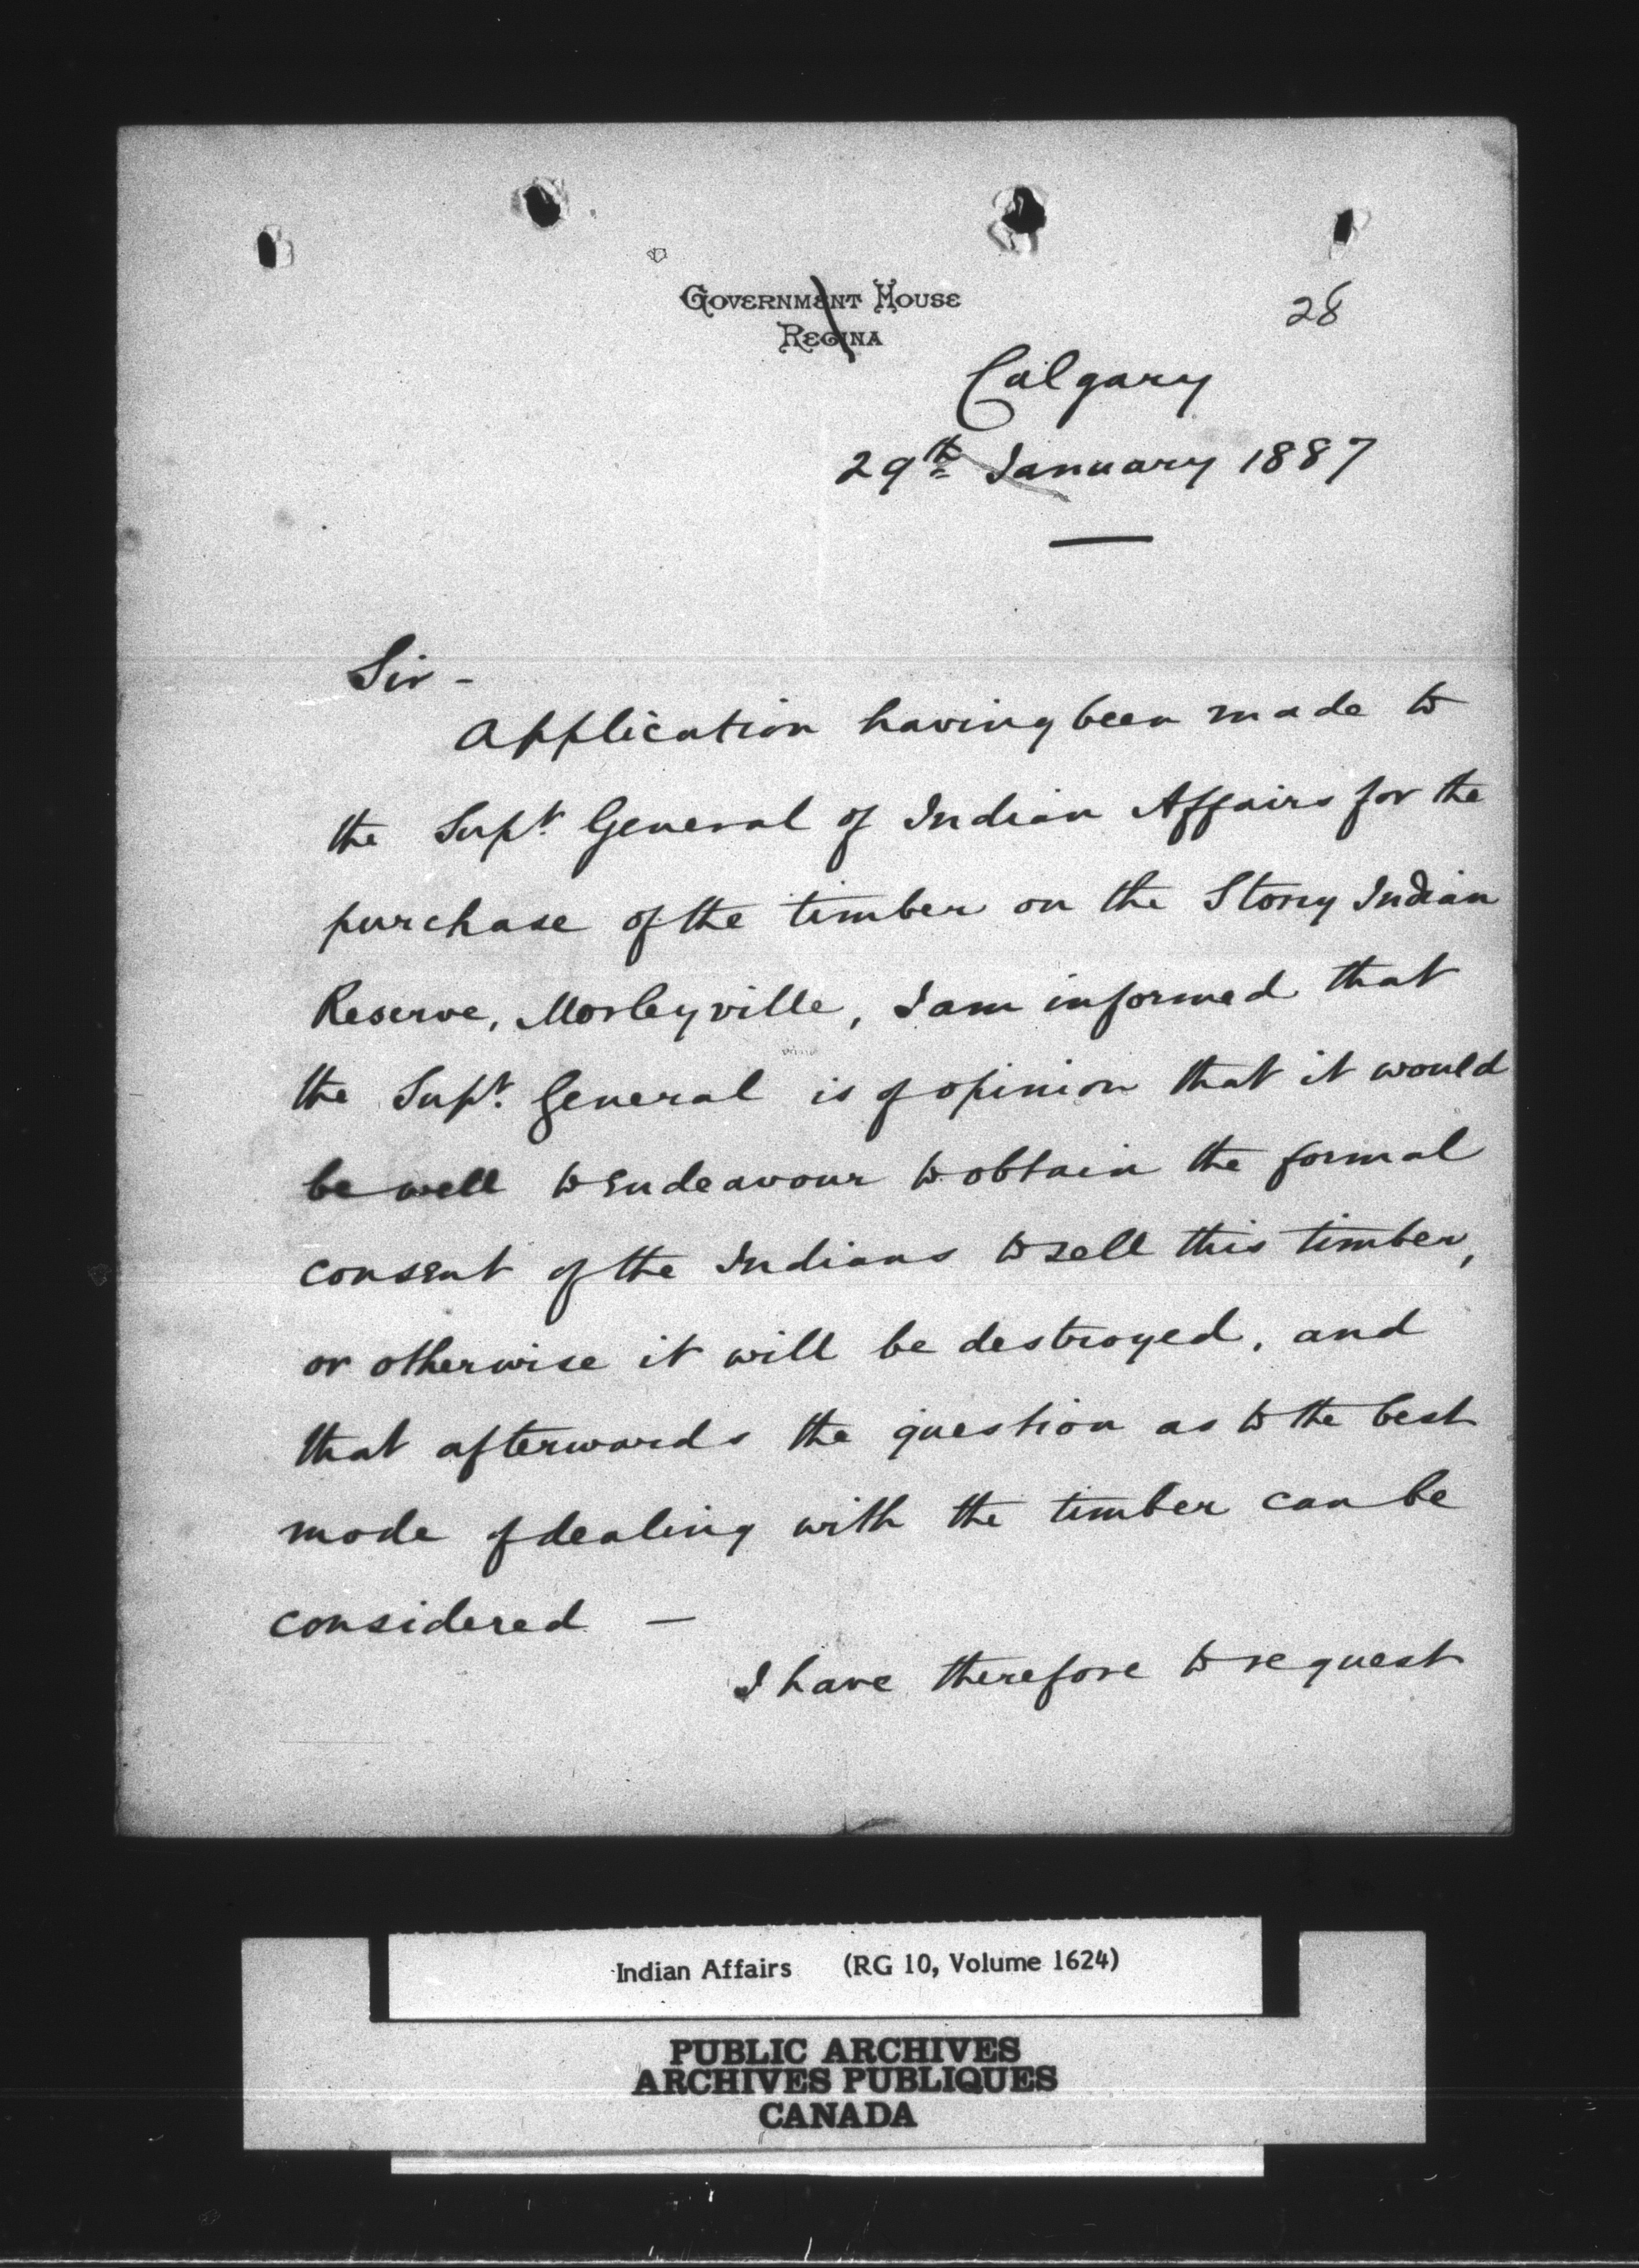 GOVERNMENT HOUSE
REGINA
28
Calgary
29th January 1887
Sir -
Application having been made to
the Supt General of Indian Affairs for the
purchase of the timber on the Stony Indian
Reserve, Morleyville, I am informed that
the Supt. General is of opinion that it would
be well to endeavour to obtain the formal
consent of the Indians to sell this timber,
or otherwise it will be destroyed, and
that afterwards the question as to the best
mode of dealing with the timber can be
considered —
I have therefore to request
Indian Affairs (RG 10, Volume 1624)
PUBLIC ARCHIVES
ARCHIVES PUBLIQUES
CANADA